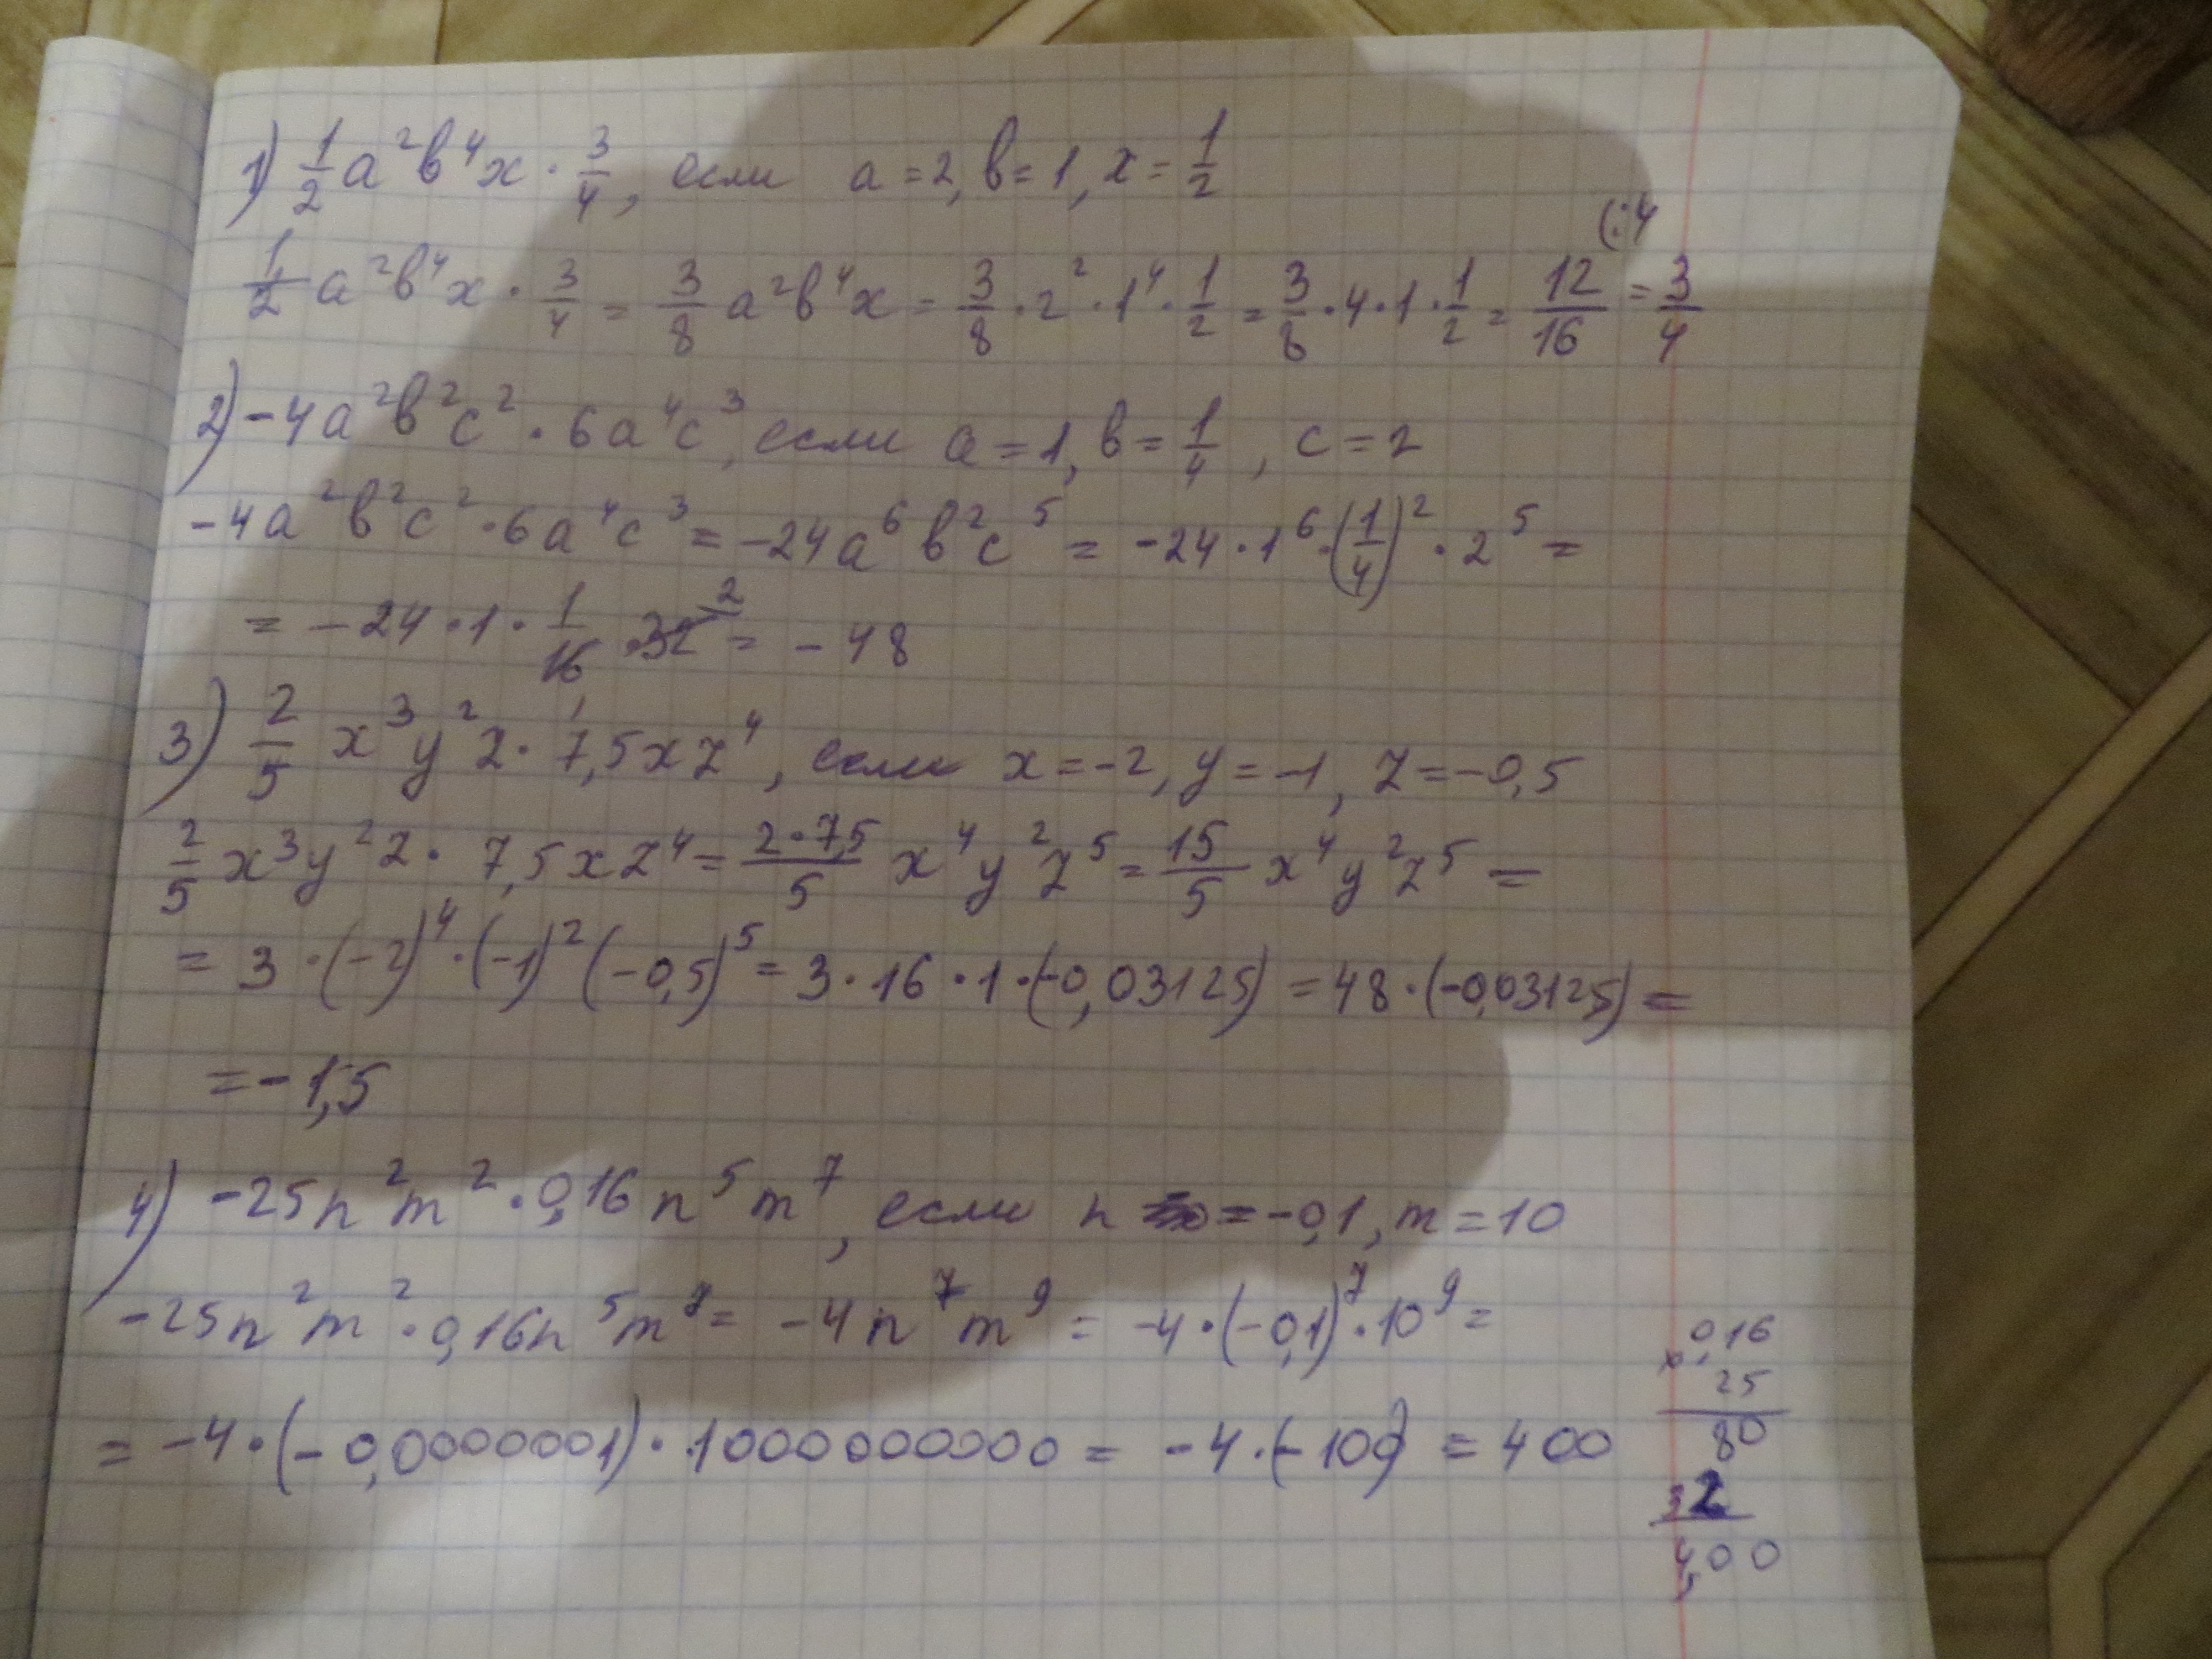 1) 1/2 a²b⁴x · 3/4, если a = 2, b = 1, x = 1/2
(:4
1/2 a²b⁴x · 3/4 = 3/8 a²b⁴x = 3/8 · 2² · 1⁴ · 1/2 = 3/8 · 4 · 1 · 1/2 = 12/16 = 3/4
2) -4a²b²c² · 6a⁴c³, если a = 1, b = 1/4, c = 2
-4a²b²c² · 6a⁴c³ = -24a⁶b²c⁵ = -24 · 1⁶ · (1/4)² · 2⁵ =
= -24 · 1 · 1/16 · 32 2 = -48
3) 2/5 x³y²z · 7,5xz⁴, если x = -2, y = -1, z = -0,5
2/5 x³y²z · 7,5xz⁴ = 2·7,5/5 x⁴y²z⁵ = 15/5 x⁴y²z⁵ =
= 3 · (-2)⁴ · (-1)² (-0,5)⁵ = 3 · 16 · 1 · (-0,03125) = 48 · (-0,03125) =
= -1,5
4) -25n²m² · 0,16n⁵m⁷, если n = -0,1, m = 10
-25n²m² · 0,16n⁵m⁷ = -4n⁷m⁹ = -4 · (-0,1)⁷ · 10⁹ =
= -4 · (-0,0000001) · 1000000000 = -4 · (-100) = 400
× 0,16
25
80
32
4,00